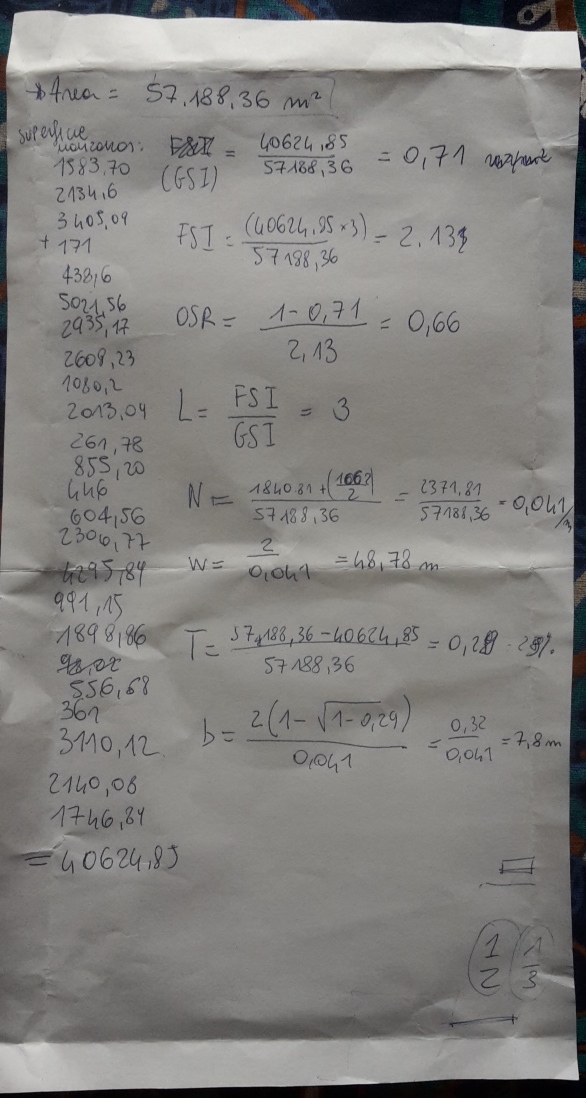 → Area = 57.188,36 m²
superficie
1583,70
2134,6
3405,09
+ 171
438,6
5021,56
2935,17
2608,23
1080,2
2013,04
261,78
855,20
446
604,56
2306,77
4295,84
991,15
1898,86
556,68
361
3110,12
2140,08
1746,84
= 40624,85
(GSI) = 40624,85 / 57188,36 = 0,71
FSI = (40624,85 × 3) / 57188,36 = 2.13
OSR = 1 - 0,71 / 2,13 = 0,66
L = FSI / GSI = 3
N = 1840.81 + (1062 / 2) / 57188,36 = 2371,81 / 57188,36 = 0,041/m
W = 2 / 0,041 = 48,78 m
T = 57.188,36 - 40624,85 / 57188,36 = 0,29
b = 2(1 - √1-0,29) / 0,041 = 0,32 / 0,041 = 7,8 m
1/2 1/3